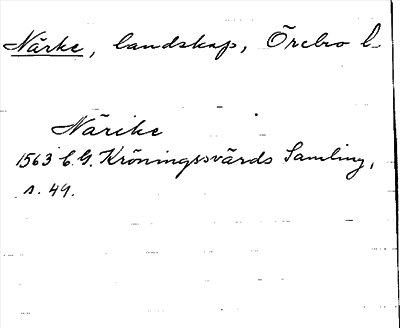 Närke, landskap, Örebro l
Närike
1563 C. G. Kröningssvärds Samling,
s. 49.